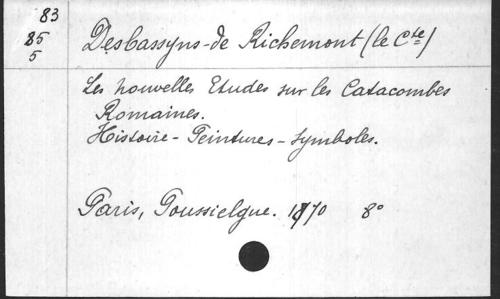 83
85
5
Desbassyns-de Richemont (le Cte)
Les nouvelles Etudes sur les Catacombes
Romaines.
Histoire - Peintures - Symboles.
Paris, Poussielgue. 1870 8°